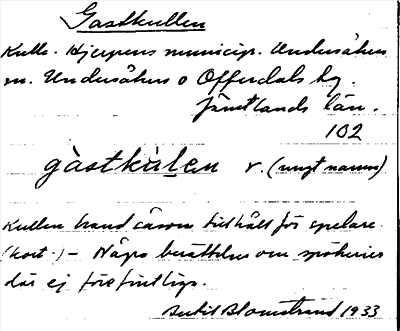 Gastkullen
Kulle. Hjerpens municip. Undersåkers
sn. Undersåkers o Offerdals tg.
Jämtlands län.
102
gàstkàlen v. (ungt namn)
Kullen känd såsom tillhåll för spelare
(kort.) – Några berättelser om spökerier
där ej förefintligs.
Bertil Blomstrand 1933